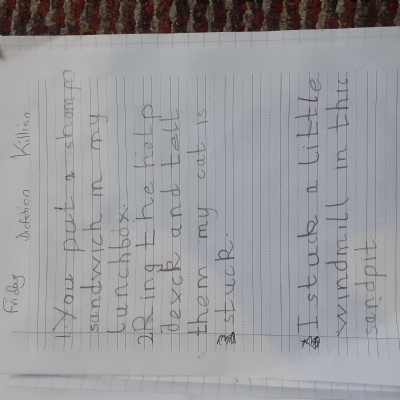 Friday Dictation Killian
1. You put a shampo
sandwich in my
lunchbox.
2) Ring the help
devck and tell
them my cat is
3 stuck.
I stuck a little
windmill in this
sandpit